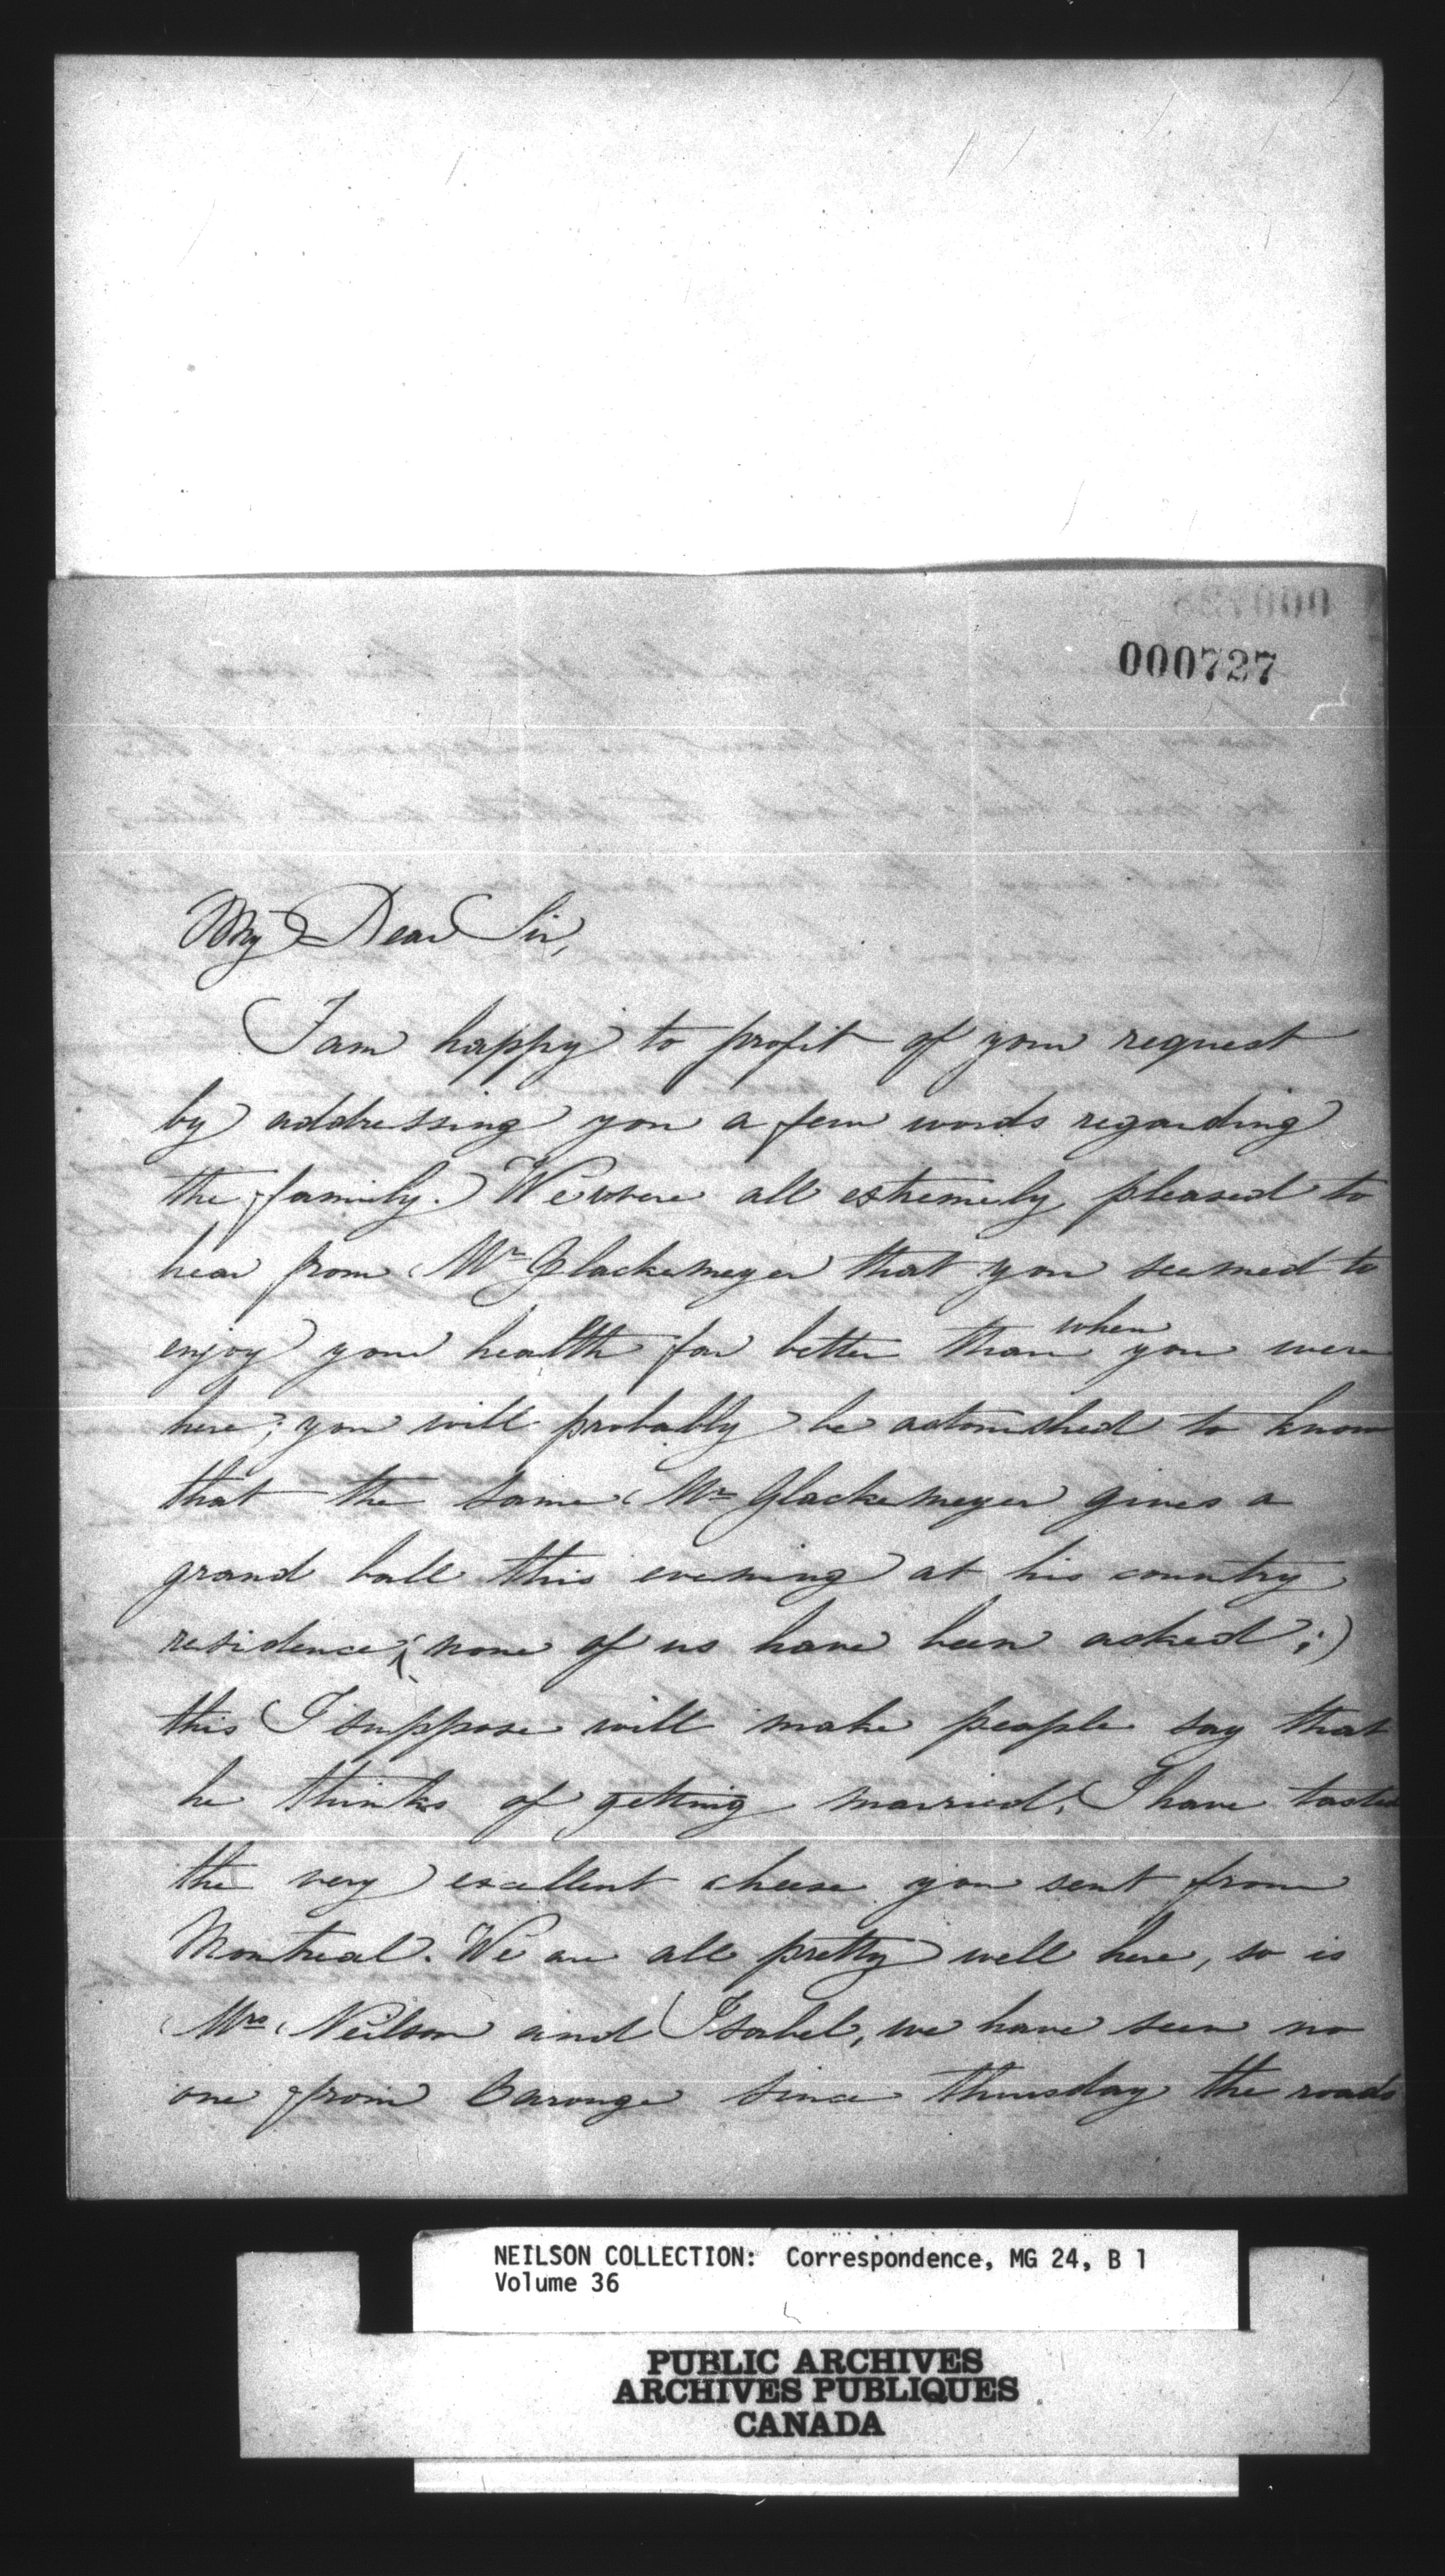 000727
My Dear Sir,
I am happy to profit of your request
by addressing you a few words regarding
the family. We were all extremely pleased to
hear from Mr Glackemeyer that you seemed to
enjoy your health far better than when you were
here; you will probably be astonished to know
that the same Mr Glackemeyer gives a
grand ball this evening at his country
residence (none of us have been asked;)
this I suppose will make people say that
he thinks of getting married. I have tasted
the very excellent cheese you sent from
Montreal. We are all pretty well here, so is
Mrs Neilson and Isabel, we have seen no
one from since thursday the roads
NEILSON COLLECTION: Correspondence, MG 24, B 1
Volume 36
PUBLIC ARCHIVES
ARCHIVES PUBLIQUES
CANADA